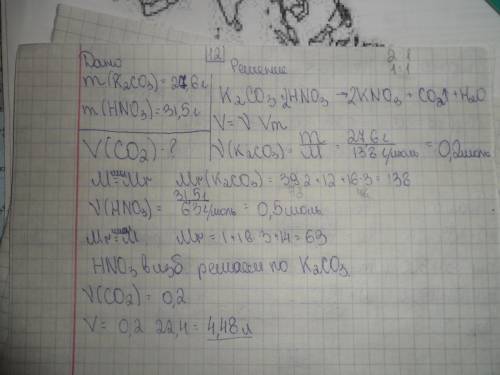 12
2 1
1:1
Дано
Решение
m(K₂CO₃)=27,6г
m(HNO₃)=31,5г
K₂CO₃+2HNO₃→2KNO₃+CO₂↑+H₂O
V=ν Vm
V(CO₂)-?
ν(K₂CO₃)=m/M=27,6г/138г/моль=0,2моль
M=Mr Mr(K₂CO₃)=39 2+12+16·3=138
ν(HNO₃)=31,5г/63г/моль=0,5моль
Mr=M Mr=1+16 3+14=63
HNO₃ в изб решаем по K₂CO₃
ν(CO₂)=0,2
V=0,2 22,4=4,48л